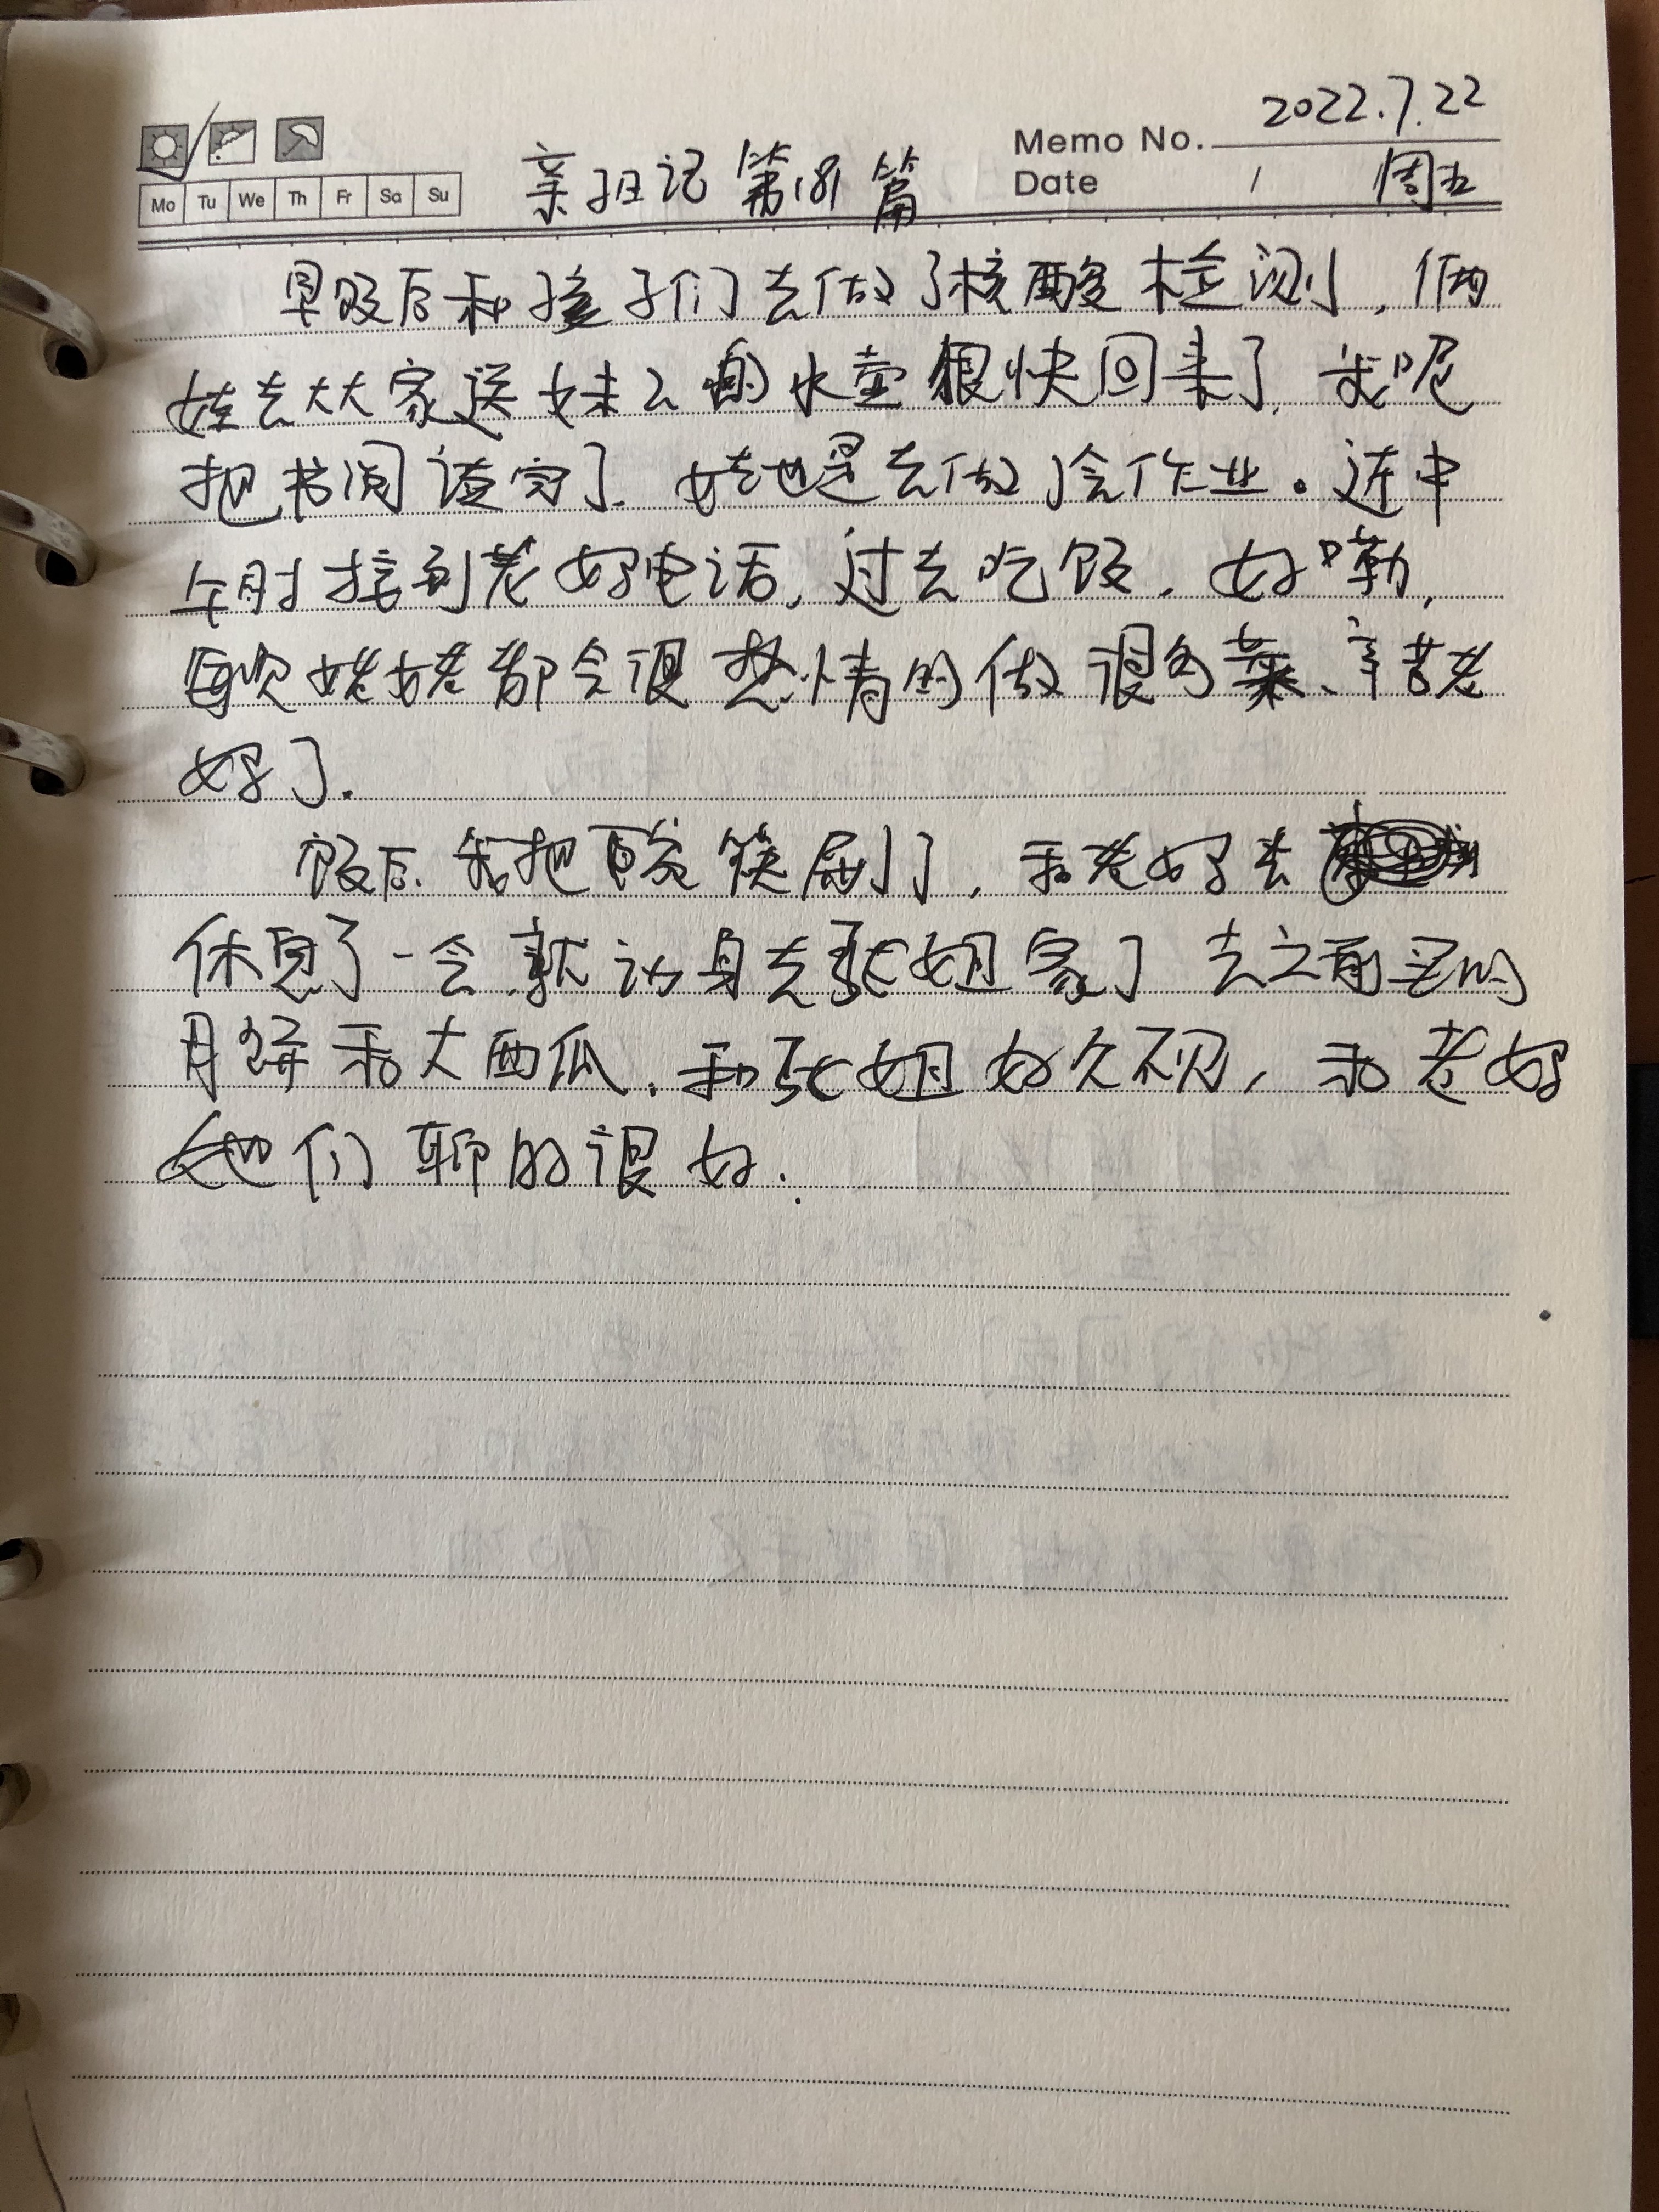 2022.7.22
Memo No.
亲子日记 第181篇
Date / 周五
Mo Tu We Th Fr Sa Su
早饭后和孩子们去做了核酸检测，俩
娃去大大家送妹妹的水壶很快回来了，我呢
把书阅读完了。娃也是去做了会作业。近中
午时接到老妈电话，过去吃饭，好嘞，
每次姥姥都会很热情的做很多菜、辛苦老
妈了.
饭后，我把碗筷刷了，和老妈去
休息了一会，就动身去张姐家了 去之前买的
月饼和大西瓜，和张姐好久不见，和老妈
她们聊的很好.